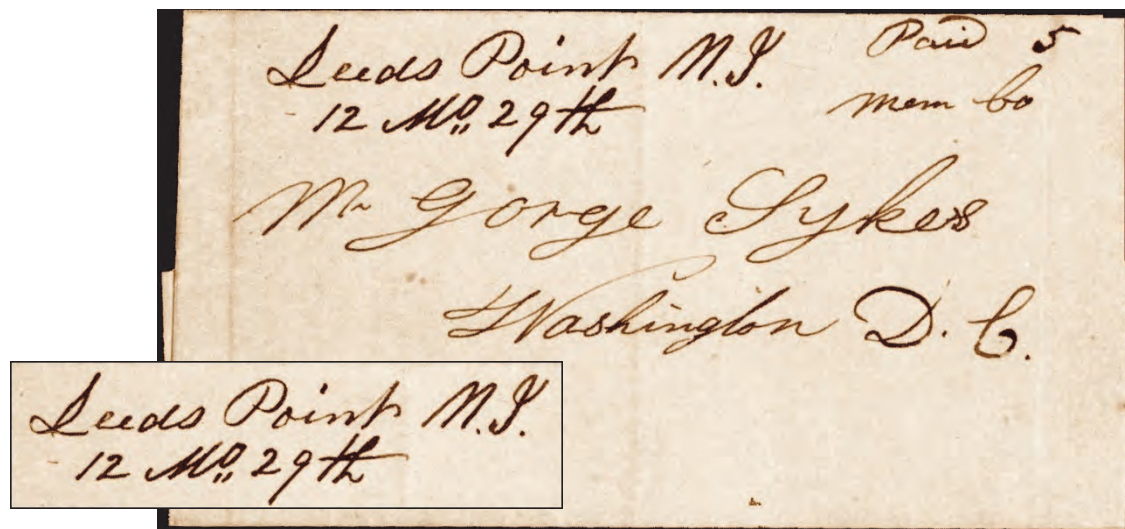 Leeds Point N.J. Paid 5
12 Mo. 29th Mem Co
Mr Gorge Sykes
Washington D.C.
Leeds Point N.J.
12 Mo. 29th